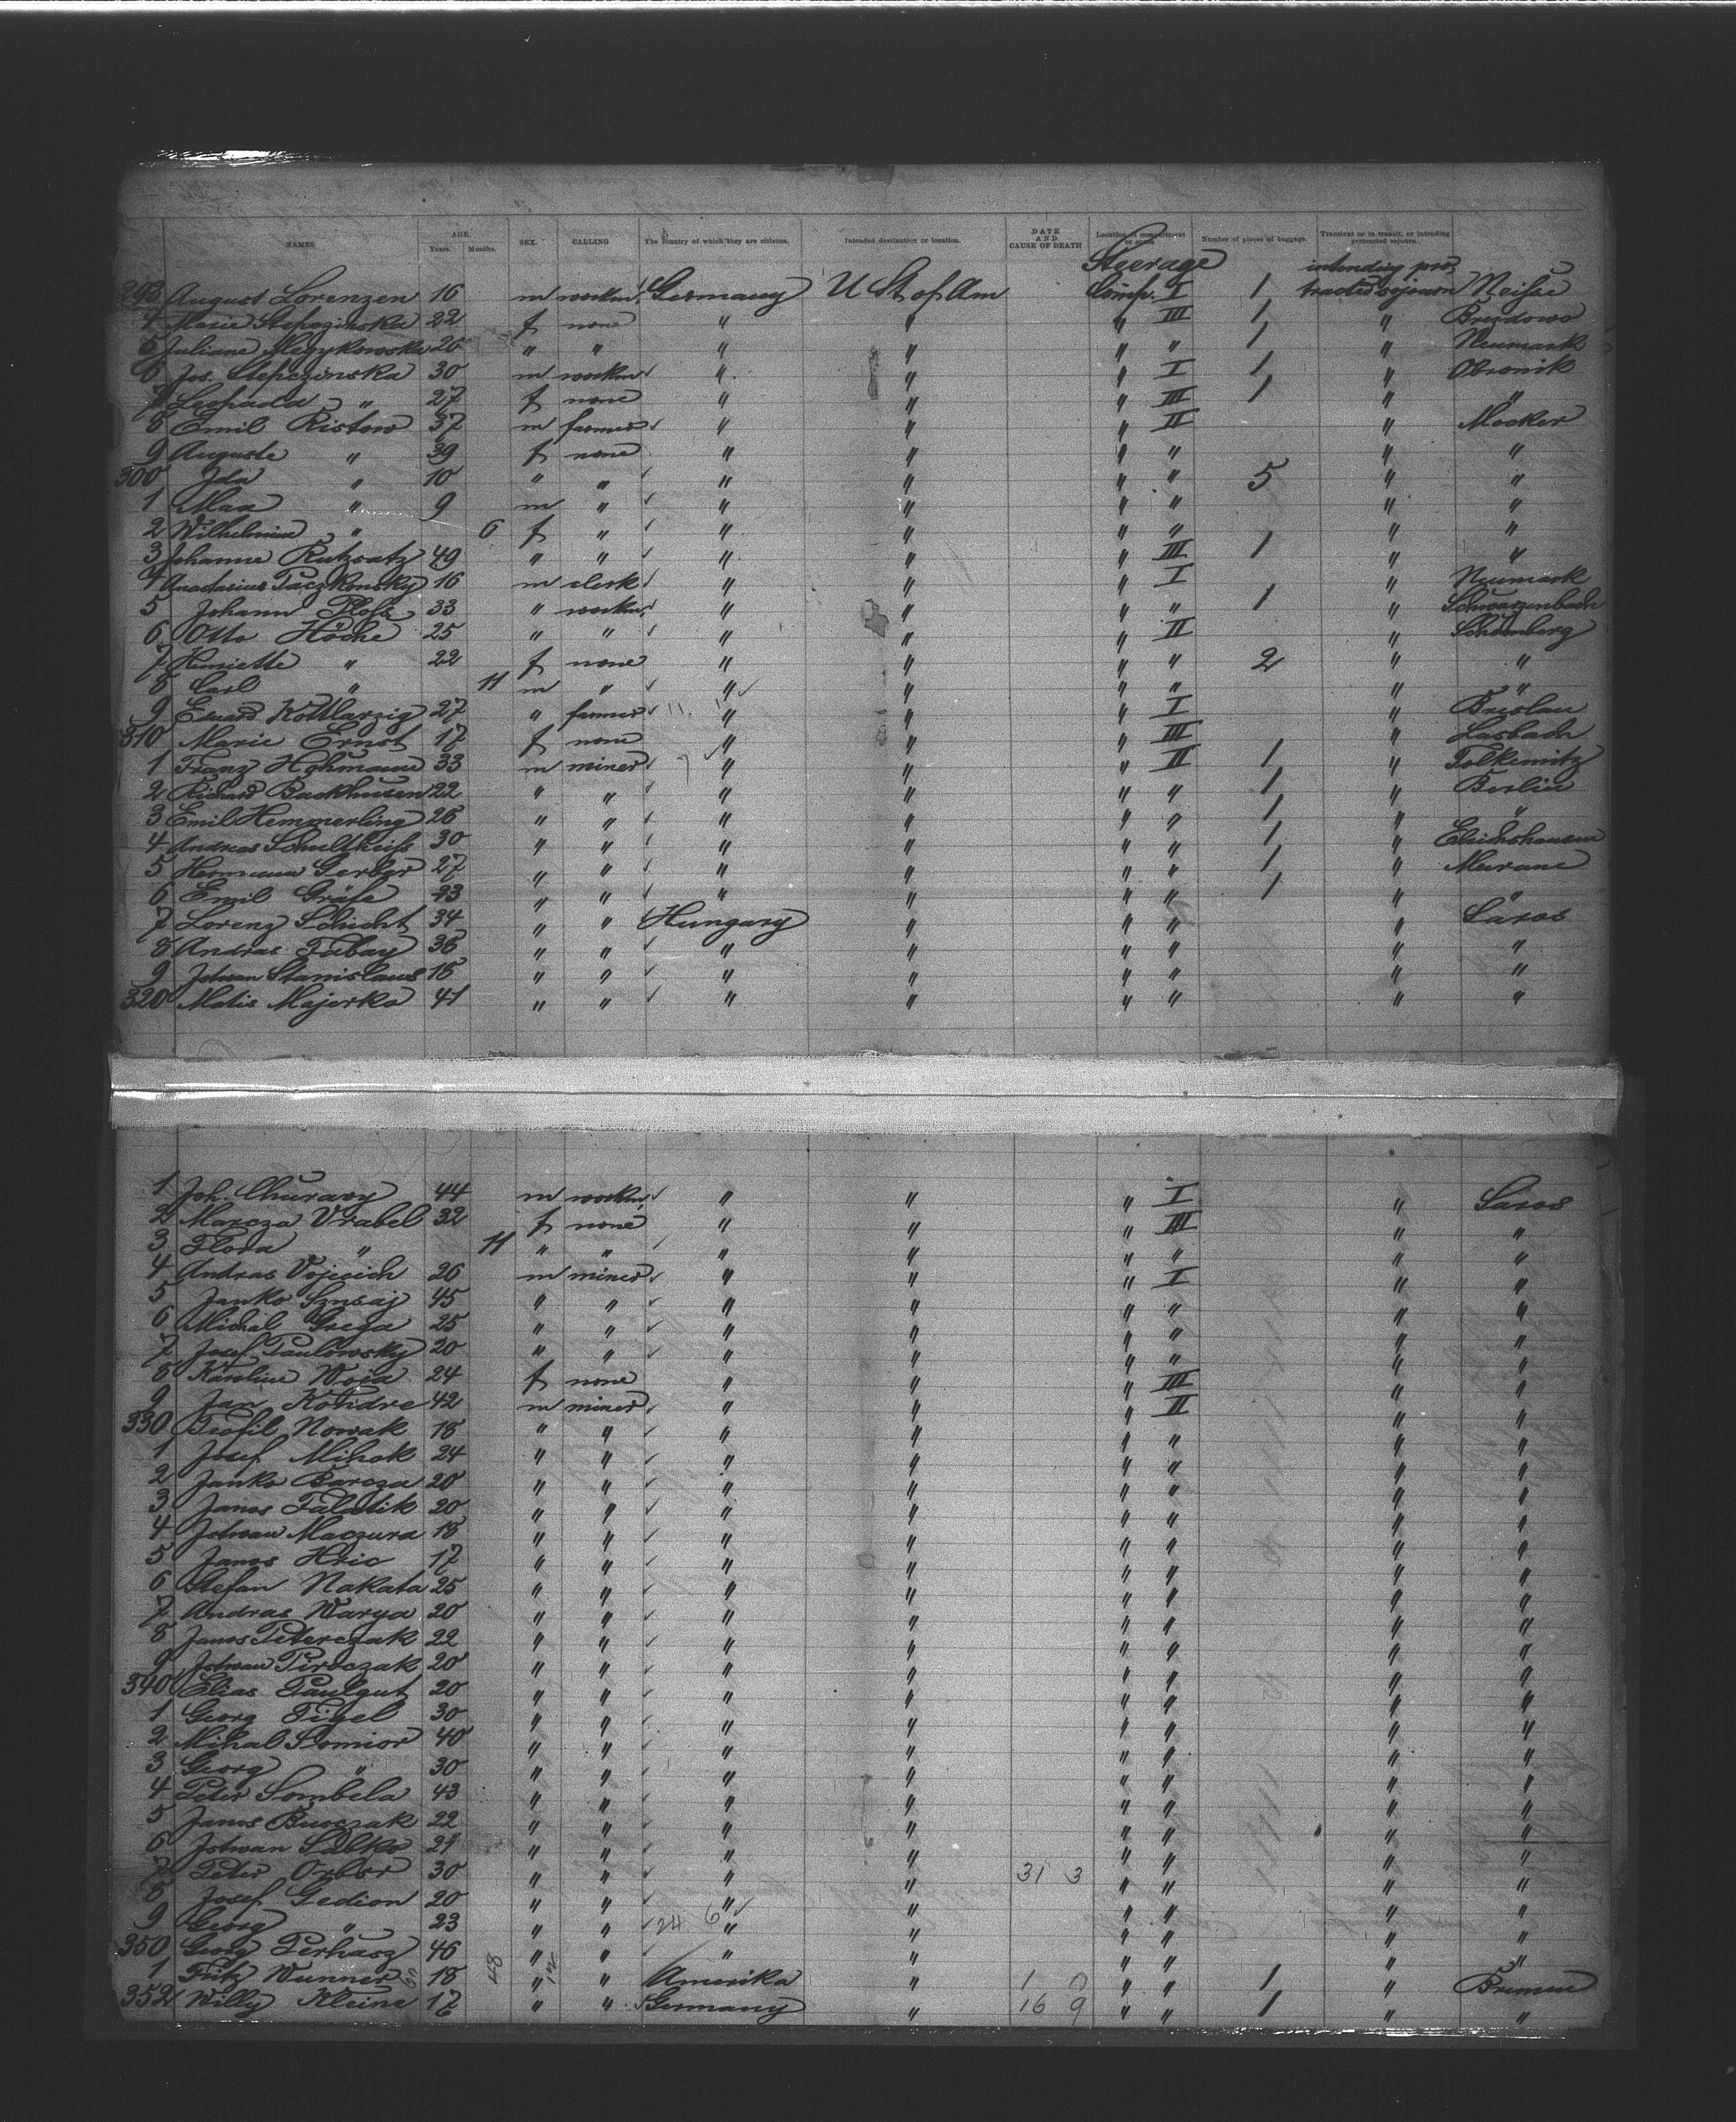 NAMES AGE. Years. Months. SEX. CALLING The country of which they are citizens. Intended destination or location. DATE AND CAUSE OF DEATH Location of compartment or space. Number of pieces of baggage. Transient or in transit, or intending protracted sojourn.
Steerage intending pro-
293 August Lorenzen 16 m workm. Germany U St of Am Comp. I 1 tracted sojourn Neisse
4 Marie Stepczinska 22 f none " " " III 1 "
5 Juliane 26 " " " " " " 1 " Neumark
6 Jos. Stepczinska 30 m workm " " " I 1 " Obronik
7 Leokadia " 27 f none " " " III 1 " "
8 Emil Ristow 37 m farmer " " " II " Mocker
9 Auguste " 39 f none " " " " " "
300 Ida " 10 " " " " " " 5 " "
1 Max " 9 m " " " " " " "
2 Wilhelmine " 6 f " " " " " " "
3 Johanne Rutzatz 49 " " " " " III 1 " "
4 Anastasius Taczkowsky 16 m clerk " " " I " Neumark
5 Johann 33 " workm. " " " " 1 " Schwarzenbach
6 Otto Höche 25 " " " " " II " Schömberg
7 Henriette " 22 f none " " " " 2 " "
8 Carl " 11 m " " " " " " "
9 Eduard Kottlarzig 27 " farmer " " " I " Breslau
310 Marie Ernst 17 f none " " " III " Lasbach
1 Franz Hohmann 33 m miner " " " II 1 " Tolkemitz
2 Richard Backhusen 22 " " " " " " 1 " Berlin
3 Emil Hemmerling 26 " " " " " " 1 " "
4 Andreas Schultheiss 30 " " " " " " 1 "
5 Hermann Gerber 27 " " " " " " 1 " Meerane
6 Emil Gräfe 23 " " " " " " 1 " "
7 Lorenz Schicht 34 " " Hungary " " " " Saros
8 Andras Tubay 36 " " " " " " " "
9 Istwan Stanislaus 18 " " " " " " " "
320 Matis Majerka 41 " " " " " " " "
1 Joh. Churavy 44 m workm. " " " I " Saros
2 Marcza Vrabel 32 f none " " " III " "
3 Flora " 11 " " " " " " " "
4 Andras Vojcich 26 m miner " " " I " "
5 Janko 45 " " " " " " " "
6 Michal Grega 25 " " " " " " " "
7 Josef Paulowsky 20 " " " " " " " "
8 Karoline Woja 24 f none " " " III " "
9 Jan Kohdre 42 m miner " " " II " "
330 Teofil Nowak 18 " " " " " " " "
1 Josef Mihok 24 " " " " " " " "
2 Janko Barcza 20 " " " " " " " "
3 Janos Talatik 20 " " " " " " " "
4 Istwan Maczura 18 " " " " " " " "
5 Janos Hric 17 " " " " " " " "
6 Stefan Nakata 25 " " " " " " " "
7 Andras Warya 20 " " " " " " " "
8 Janos Peterczak 22 " " " " " " " "
9 Istwan Piroczak 20 " " " " " " " "
340 Elias Paulgut 20 " " " " " " " "
1 Georg Figel 30 " " " " " " " "
2 Mihal Somior 40 " " " " " " " "
3 Georg " 30 " " " " " " " "
4 Peter Sombela 43 " " " " " " " "
5 Janos Busczak 22 " " " " " " " "
6 Istwan Sabko 21 " " " " " " " "
7 Peter Orber 30 " " " " 31 3 " " " "
8 Josef Gedion 20 " " " " " " " "
9 Georg " 23 " " 24. 6 " " " " " "
350 Georg Terhasz 46 " " " " " " " "
1 Fritz Wunner 18 " " Amerika " " " 1 " Bremen
352 Willy Kleine 17 " " Germany " 16 9 " " 1 " "